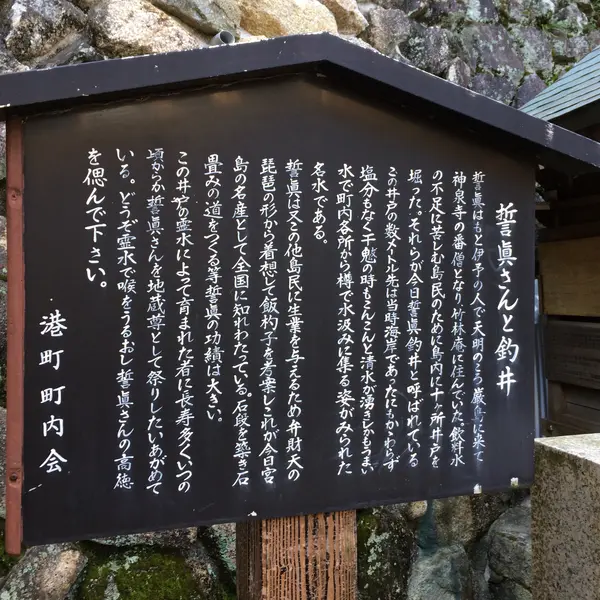 誓眞さんと釣井
誓眞はもと伊予の人で天明のころ厳島に来て
神泉寺の番僧となり、竹林庵に住んでいた。飲料水
の不足に苦しむ島民のために島内に十ヶ所井戸を
掘った。それらが今日誓眞釣井と呼ばれている
この井戸の数メートル先は当時海岸であったにもかかわらず
塩分もなく干魃の時もこんこんと清水が湧き しかもうまい
水で町内各所から樽で水汲みに集る姿がみられた
名水である。
誓眞は又この他島民に生業を与えるため弁財天の
琵琶の形から着想して飯杓子を考案しこれが今日宮
島の名産として全国に知れわたっている。石段を築き石
畳みの道をつくる等誓眞の功績は大きい。
この井戸の霊水によって育まれた者に長寿多くいつの
頃からか誓眞さんを地蔵尊として祭りしたいあがめて
いる。どうぞ霊水で喉をうるおし誓眞さんの高徳
を偲んで下さい。
港町町内会